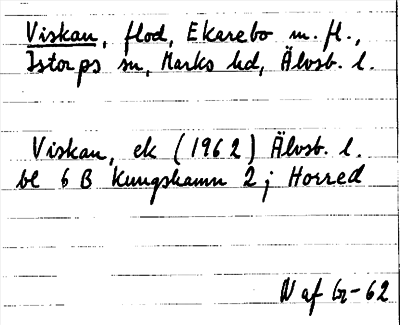 Viskan, flod, Ekarebo m. fl.,
Istorps sn, Marks hd, Älvsb. l.
Viskan, ek (1962) Älvsb. l.
bl 6 B Kungshamn 2 j Horred
N af Gr-62